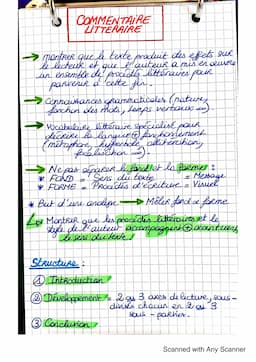 COMMENTAIRE
LITTERAIRE
→ montrer que le texte produit des effets sur
le lecteur et que l'auteur a mis en œuvre
un ensemble de procédés littéraires pour
parvenir à cette fin.
→ Connaissances grammaticales (nature,
fonction des mots, temps verbaux ...).
→ Vocabulaire littéraire spécialisé pour
décrire la langue + fonctionnement
(métaphore, hyperbole,
focalisation ...).
→ Ne pas séparer le fond et la forme:
* FOND = Sens du texte = Message
* FORME = Procédés d'écriture = Visuel
* But d'une analyse → Mêler fond et forme
↳ Montrer que les procédés littéraires et le
style de l'auteur accompagnent +
le sens du texte.
Structure :
① Introduction
② Développement = 2 ou 3 axes de lecture, sous-
divisés chacun en 2 ou 3
sous-parties.
③ Conclusion
Scanned with Any Scanner